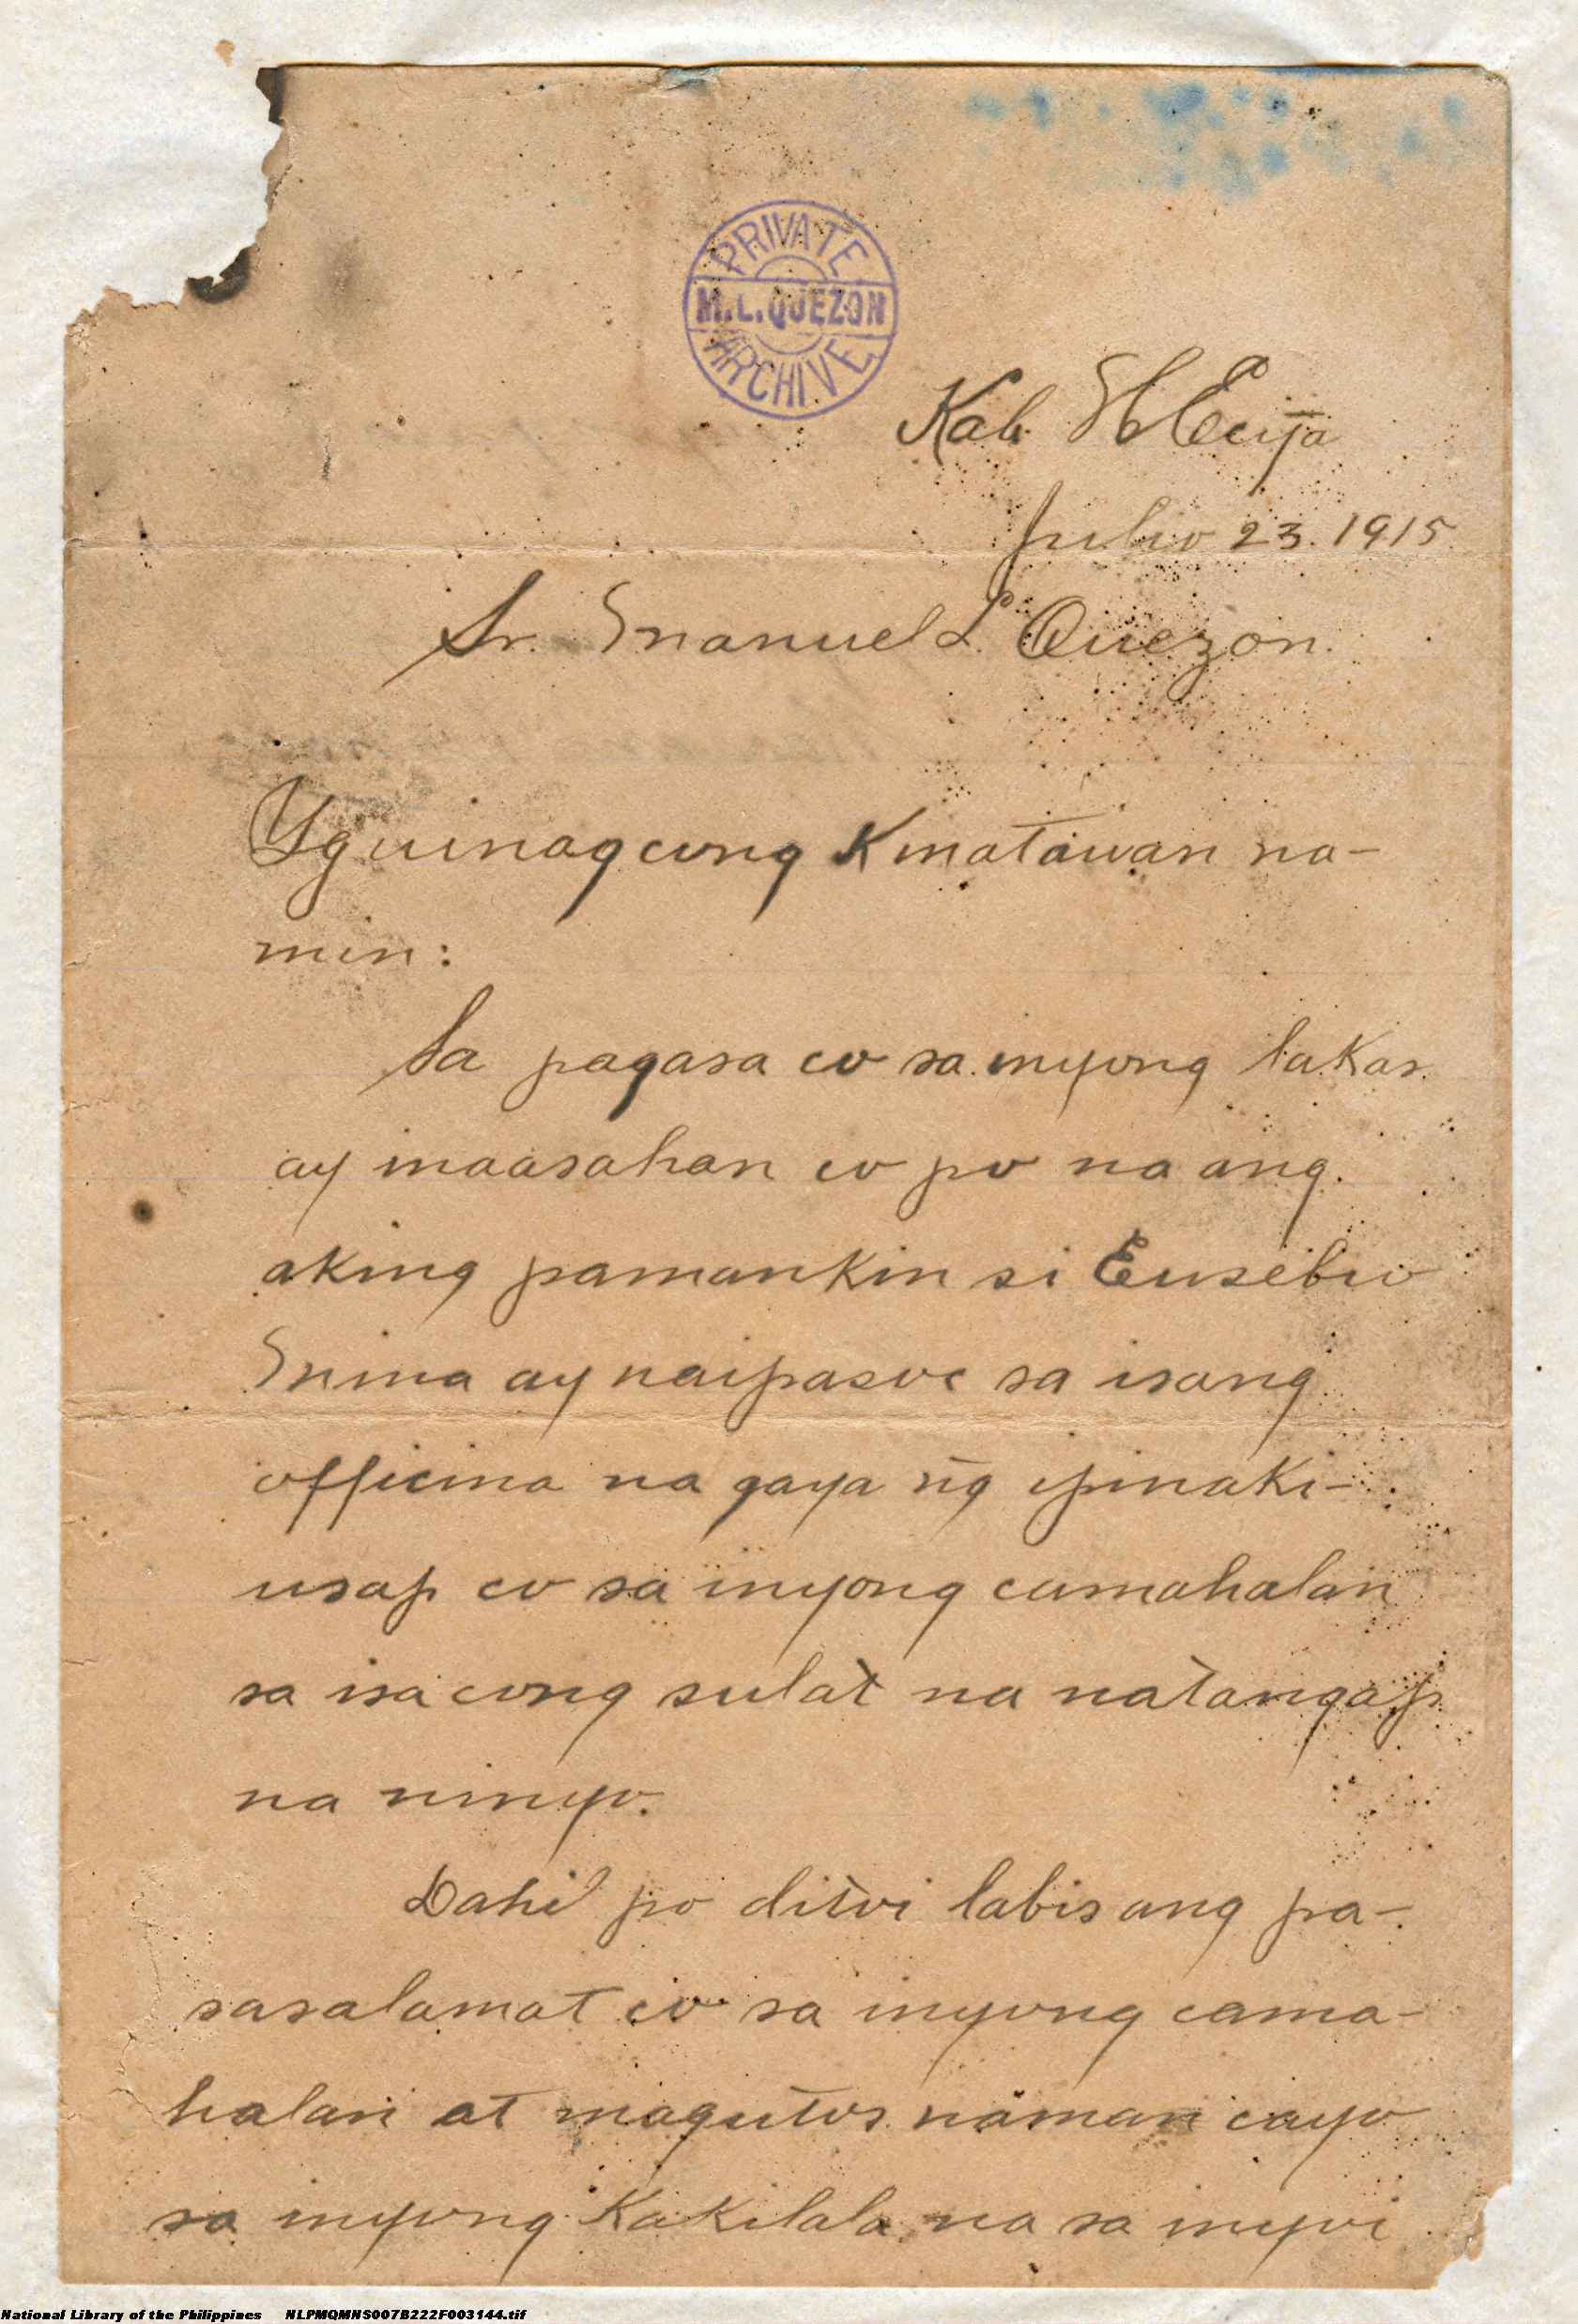 PRIVATE
M.L.QUEZON
ARCHIVE
Kab. N Ecija
Julio 23. 1915
Sr. Manuel L. Quezon.
Yguinagcung Kmatawan na-
min:
Sa pagasa co sa inyong lakas
ay inaasahan co po na ang
aking pamankin si Eusebio
Mina ay naipasoc sa isang
officina na gaya ng̃ ipinaki-
usap co sa inyong camahalan
sa isa cong sulat na natangap
na ninyo.
Dahil po ditoi labis ang pa-
sasalamat co sa inyong cama-
halan at magutos naman cayo
sa inyong Kakilala na sa inyoi
National Library of the Philippines NLPMQMNS007B222F003144.tif